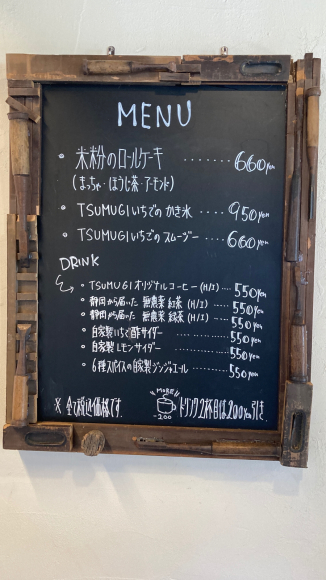 MENU
• 米粉のロールケーキ ······· 660yen
(まっちゃ・ほうじ茶・アーモンド)
• TSUMUGIいちごの かき氷 ···· 950yen
• TSUMUGIいちごの スムージー ··· 660yen
DRINK
• TSUMUGIオリジナルコーヒー (H/I) ···· 550yen
• 静岡から届いた 無農薬 紅茶 (H/I) ···· 550yen
• 静岡から届いた 無農薬 緑茶 (H/I) ···· 550yen
• 自家製いちご酢サイダー ········ 550yen
• 自家製レモンサイダー ········ 550yen
• 6種スパイスの自家製ジンジャエール ····· 550yen
MORE!!
-200
※ 全て税込価格です. ドリンク2杯目は200yen引き.